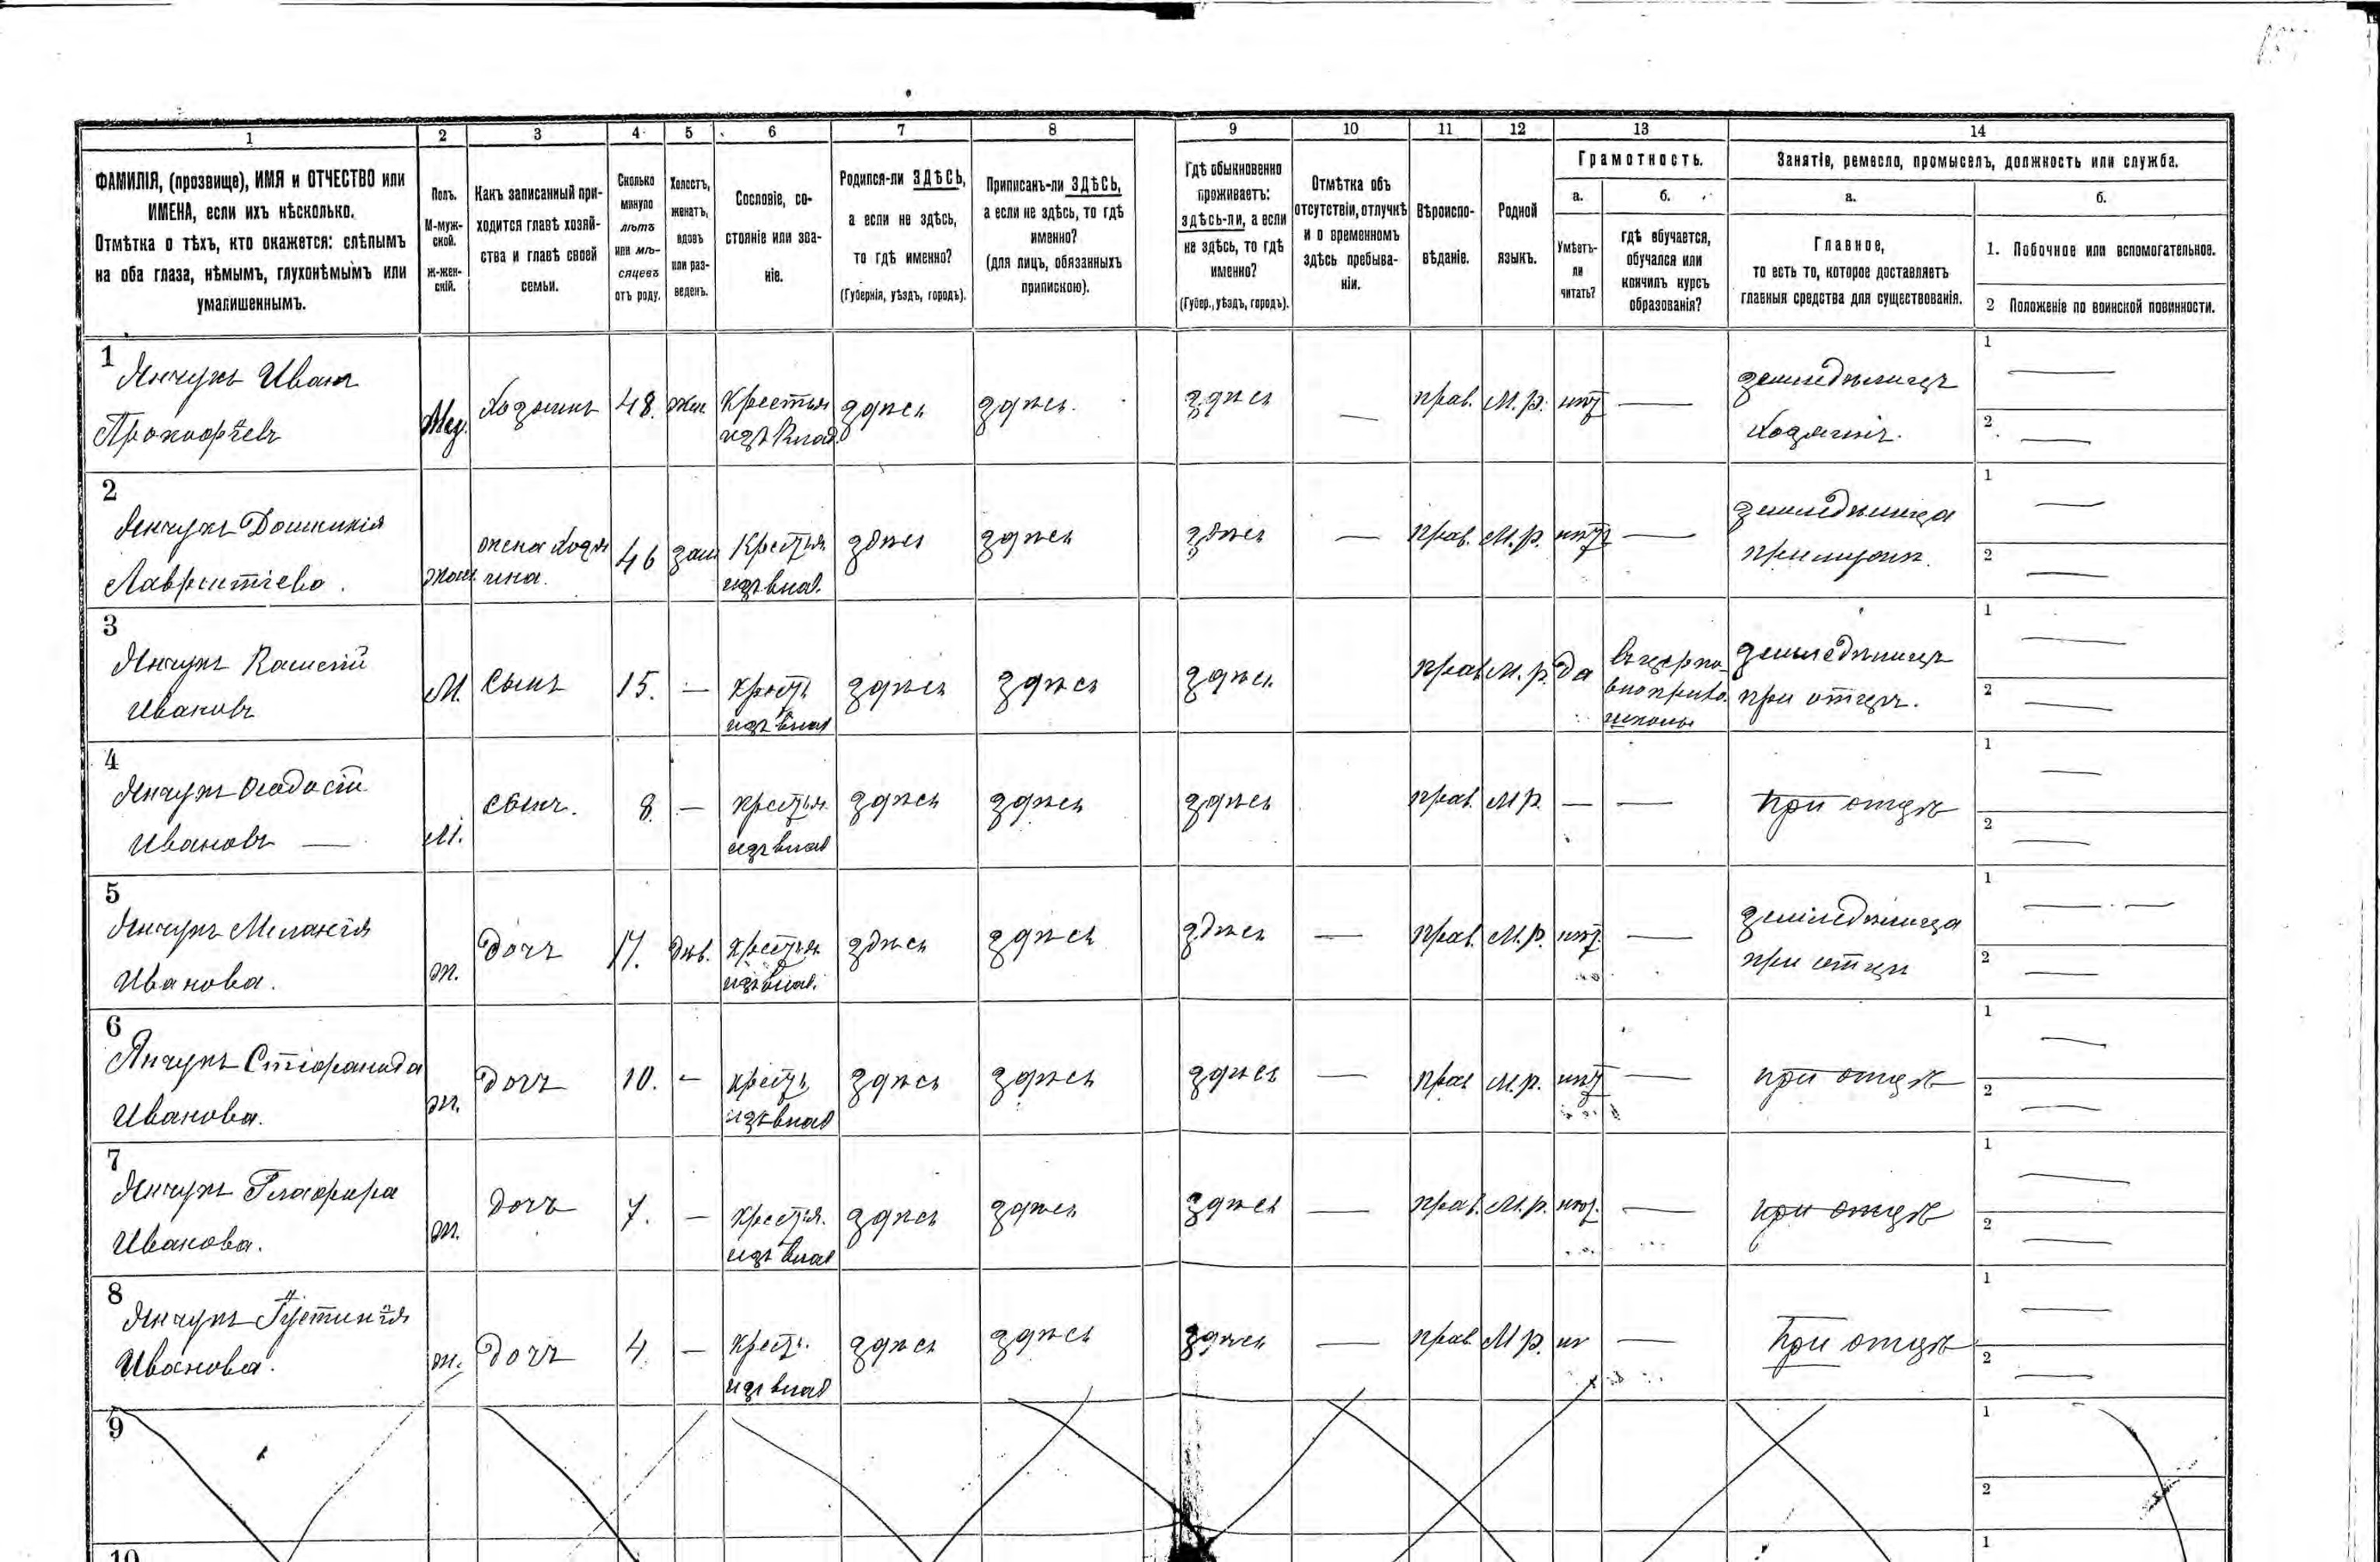 1 2 3 4 5 6 7 8 9 10 11 12 13 14
ФАМИЛІЯ, (прозвище), ИМЯ и ОТЧЕСТВО или
ИМЕНА, если ихъ нѣсколько.
Отмѣтка о тѣхъ, кто окажется: слѣпымъ
на оба глаза, нѣмымъ, глухонѣмымъ или
умалишеннымъ.
Полъ.
М-муж-
ской.
Ж-жен-
скій.
Какъ записанный при-
ходится главѣ хозяй-
ства и главѣ своей
семьи.
Сколько
минуло
лѣтъ
или мѣ-
сяцевъ
отъ роду.
Холостъ,
женатъ,
вдовъ
или раз-
веденъ.
Сословіе, со-
стояніе или зва-
ніе.
Родился-ли ЗДѢСЬ,
а если не здѣсь,
то гдѣ именно?
(Губернія, уѣздъ, городъ).
Приписанъ-ли ЗДѢСЬ,
а если не здѣсь, то гдѣ
именно?
(для лицъ, обязанныхъ
припискою).
Гдѣ обыкновенно
проживаетъ:
здѣсь-ли, а если
не здѣсь, то гдѣ
именно?
(Губер., уѣздъ, городъ).
Отмѣтка объ
отсутствіи, отлучкѣ
и о временномъ
здѣсь пребыва-
ніи.
Вѣроиспо-
вѣданіе.
Родной
языкъ.
Грамотность.
а.
Умѣетъ-
ли
читать?
б.
гдѣ обучается,
обучался или
кончилъ курсъ
образованія?
Занятіе, ремесло, промыселъ, должность или служба.
а.
Главное,
то есть то, которое доставляетъ
главныя средства для существованія.
б.
1. Побочное или вспомогательное.
2 Положеніе по воинской повинности.
1
Янчукъ Иванъ
Прокофьевъ
Муж. Хозяинъ 48. жен. Крестьян
изъ влад.
здѣсь здѣсь. здѣсь — прав. М.р. нѣт —
земледѣлецъ
хозяинъ.
1 —
2 —
2
Янчукъ Домникія
Лаврентіева.
жен жена хозя
ина.
46 зам Крестьян
изъ влад.
здѣсь здѣсь здѣсь — прав. М.р. нѣт —
земледѣлица
при мужѣ.
1 —
2 —
3
Янчукъ
Ивановъ
М. сынъ 15. — крест
изъ влад
здѣсь здѣсь здѣсь прав М.р. да
въ церко-
вноприхо.
школѣ
земледѣлецъ
при отцѣ.
1 —
2 —
4
Янчукъ Феодосій
Ивановъ —
М. сынъ. 8. — крестья
изъ влад
здѣсь здѣсь здѣсь прав. М.р. — —
при отцѣ
1 —
2 —
5
Янчукъ Меланія
Иванова.
ж. дочь 17. дѣв. крестья
изъ влад.
здѣсь здѣсь здѣсь — прав. М.р. нѣт. —
земледѣлица
при отцѣ
1 —
2 —
6
Янчукъ Стефанида
Иванова.
ж. дочь 10. — крест
изъ влад
здѣсь здѣсь здѣсь — прав М.р. нѣт —
при отцѣ
1 —
2 —
7
Янчукъ Глафира
Иванова.
ж. дочь 7. — крестья.
изъ влад
здѣсь здѣсь здѣсь — прав. М.р. нѣт. —
при отцѣ
1 —
2 —
8
Янчукъ
Иванова.
ж. дочь 4. — крест.
изъ влад
здѣсь здѣсь здѣсь — прав. М.р. —
при отцѣ
1 —
2 —
9
1
2
10
1